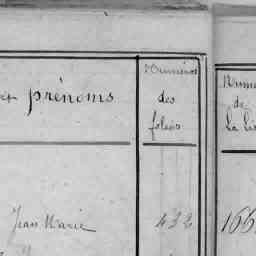 et prénoms
Numéros
des
folios
de
Jean Marie
432
166